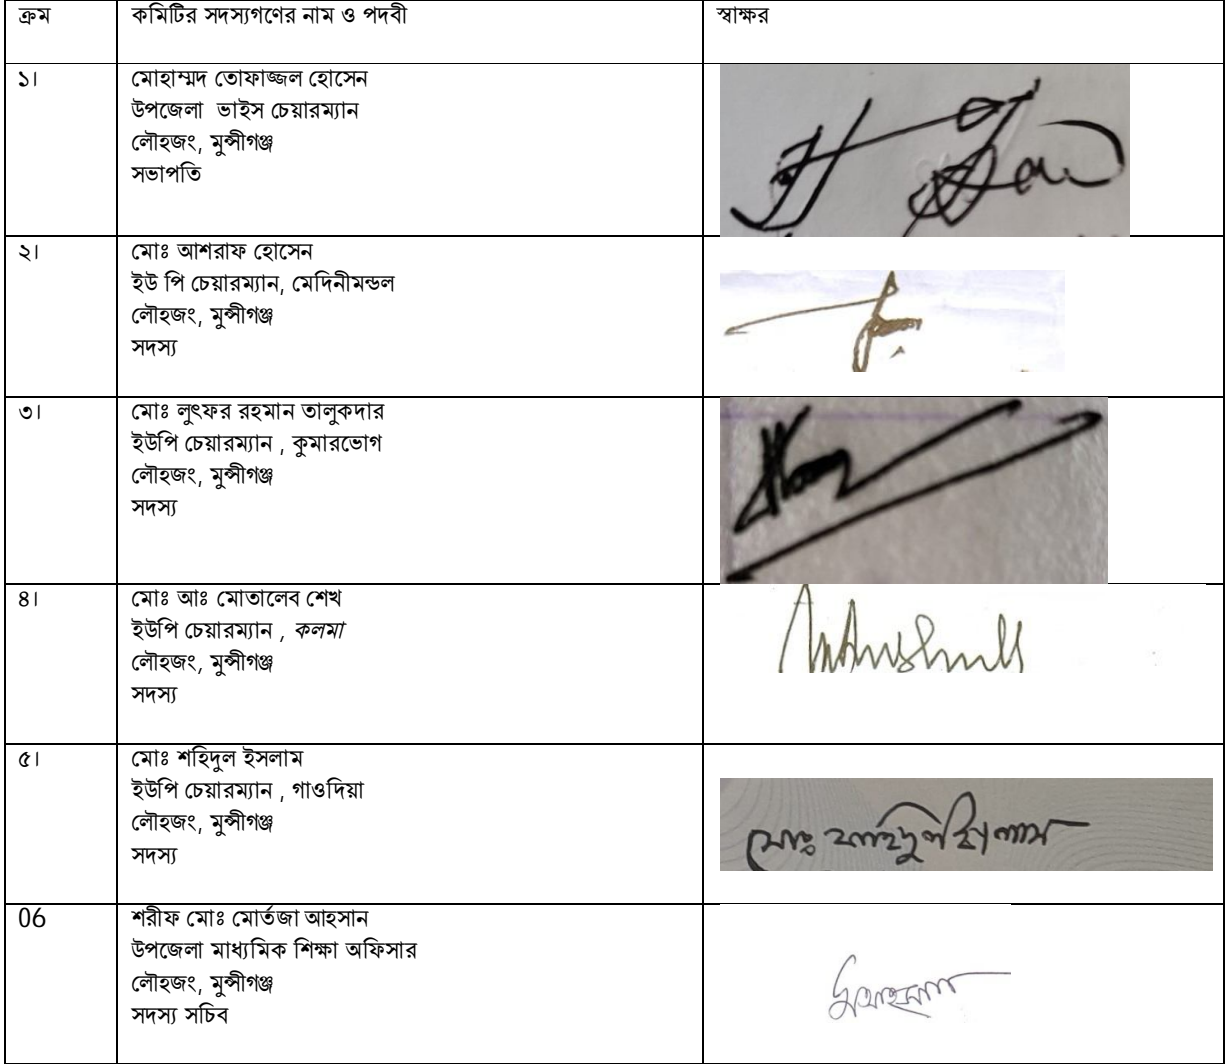 ক্রম কমিটির সদস্যগণের নাম ও পদবী স্বাক্ষর
১। মোহাম্মদ তোফাজ্জল হোসেন
উপজেলা ভাইস চেয়ারম্যান
লৌহজং, মুন্সীগঞ্জ
সভাপতি
২। মোঃ আশরাফ হোসেন
ইউ পি চেয়ারম্যান, মেদিনীমন্ডল
লৌহজং, মুন্সীগঞ্জ
সদস্য
৩। মোঃ লুৎফর রহমান তালুকদার
ইউপি চেয়ারম্যান , কুমারভোগ
লৌহজং, মুন্সীগঞ্জ
সদস্য
৪। মোঃ আঃ মোতালেব শেখ
ইউপি চেয়ারম্যান , কলমা
লৌহজং, মুন্সীগঞ্জ
সদস্য
৫। মোঃ শহিদুল ইসলাম
ইউপি চেয়ারম্যান , গাওদিয়া
লৌহজং, মুন্সীগঞ্জ
সদস্য
06 শরীফ মোঃ মোর্তজা আহসান
উপজেলা মাধ্যমিক শিক্ষা অফিসার
লৌহজং, মুন্সীগঞ্জ
সদস্য সচিব